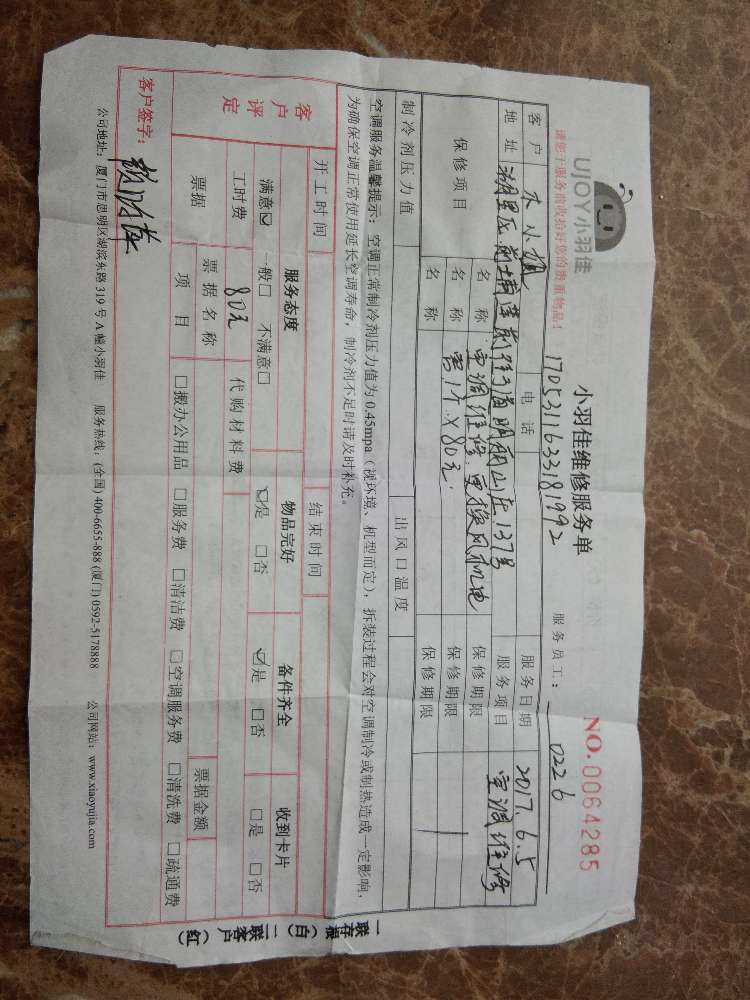 UJOY小羽佳
小羽佳维修服务单
NO.0064285
请您于服务前收拾好您的贵重物品!
1705311633181992
服务员工: 0226
客户 小姐 电话 服务日期 2017.6.5
地址 湖里区 137号 服务项目 空调维修
保修项目 名称 空调维修,更换风机电 保修期限
名称 容1个×80元. 保修期限
名称 保修期限
制冷剂压力值 出风口温度
空调服务温馨提示:空调正常制冷剂压力值为0.45mpa(视环境、机型而定),拆装过程会对空调制冷或制热造成一定影响,
为确保空调正常使用延长空调寿命,制冷剂不足时请及时补充。
开工时间 结束时间
客户评定 服务态度 物品完好 备件齐全 收到卡片
满意☑ 一般□ 不满意□ ☑是 □否 ☑是 □否 □是 □否
工时费 80元 代购材料费
票据 票据名称 票据金额
项目 □搬办公用品 □服务费 □清洁费 □空调服务费 □清洗费 □疏通费
客户签字:
公司地址:厦门市思明区湖滨东路319号A幢小羽佳 服务热线:(全国)400-6655-888 (厦门)0592-5178888 公司网站:www.xiaoyujia.com
一联存根(白) 二联客户(红)